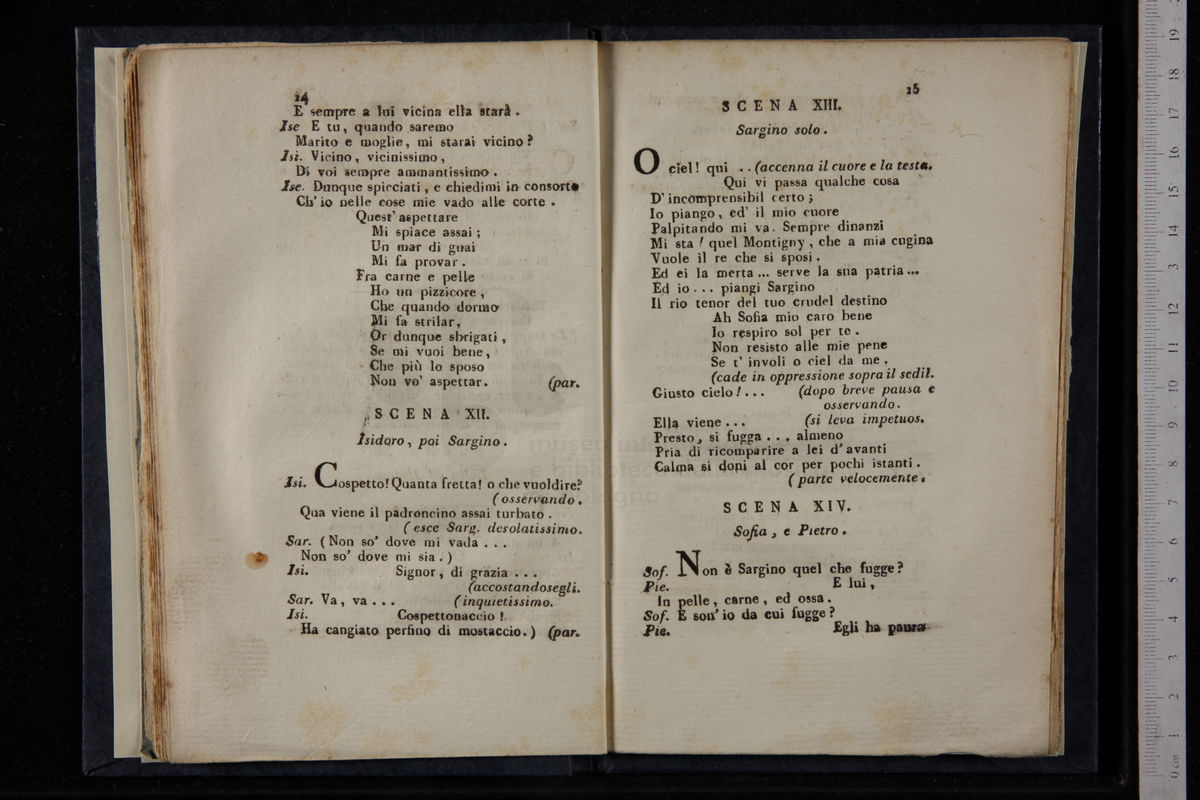 14
E sempre a lui vicina ella starà .
Ise E tu, quando saremo
Marito e moglie, mi starai vicino ?
Isi. Vicino, vicinissimo,
Di voi sempre ammantissimo .
Ise. Dunque spicciati, e chiedimi in consorte
Ch' io nelle cose mie vado alle corte .
Quest' aspettare
Mi spiace assai ;
Un mar di guai
Mi fa provar .
Fra carne e pelle
Ho un pizzicore ,
Che quando dormo
Mi fa strilar,
Or dunque sbrigati ,
Se mi vuoi bene,
Che più lo sposo
Non vo' aspettar. (par.
SCENA XII.
Isidoro, poi Sargino .
Isi. Cospetto! Quanta fretta! o che vuoldire?
( osservando .
Qua viene il padroncino assai turbato .
( esce Sarg. desolatissimo.
Sar. ( Non so' dove mi vada . . .
Non so' dove mi sia . )
Isi. Signor, di grazia . . .
(accostandosegli.
Sar. Va, va . . . ( inquietissimo.
Isi. Cospettonaccio !
Ha cangiato perfino di mostaccio. ) (par.
15
SCENA XIII.
Sargino solo .
O ciel! qui . . (accenna il cuore e la testa.
Qui vi passa qualche cosa
D' incomprensibil certo ;
Io piango, ed' il mio cuore
Palpitando mi va. Sempre dinanzi
Mi sta ! quel Montigny, che a mia cugina
Vuole il re che si sposi .
Ed ei la merta ... serve la sua patria ...
Ed io . . . piangi Sargino
Il rio tenor del tuo crudel destino
Ah Sofia mio caro bene
Io respiro sol per te .
Non resisto alle mie pene
Se t' involi o ciel da me .
(cade in oppressione sopra il sedil.
Giusto cielo ! . . . (dopo breve pausa e
osservando.
Ella viene . . . (si leva impetuos.
Presto, si fugga . . . almeno
Pria di ricomparire a lei d' avanti
Calma si doni al cor per pochi istanti .
( parte velocemente .
SCENA XIV.
Sofia , e Pietro .
Sof. Non è Sargino quel che fugge ?
Pie. E lui ,
In pelle, carne, ed ossa .
Sof. E son' io da cui fugge ?
Pie. Egli ha paura